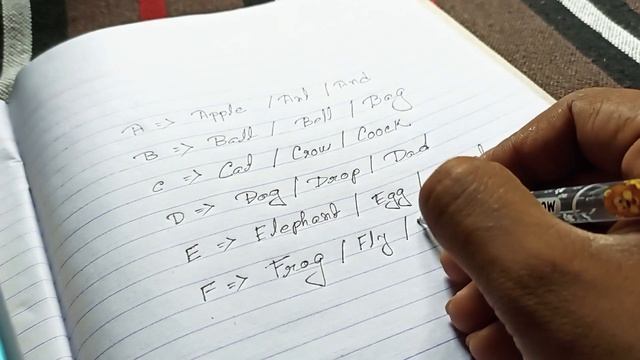 A => Apple / Ant / And
B => Ball / Bell / Bag
C => Cat / Crow / Coock
D => Dog / Drop / Dad
E => Elephant / Egg /
F => Frog / Fly /